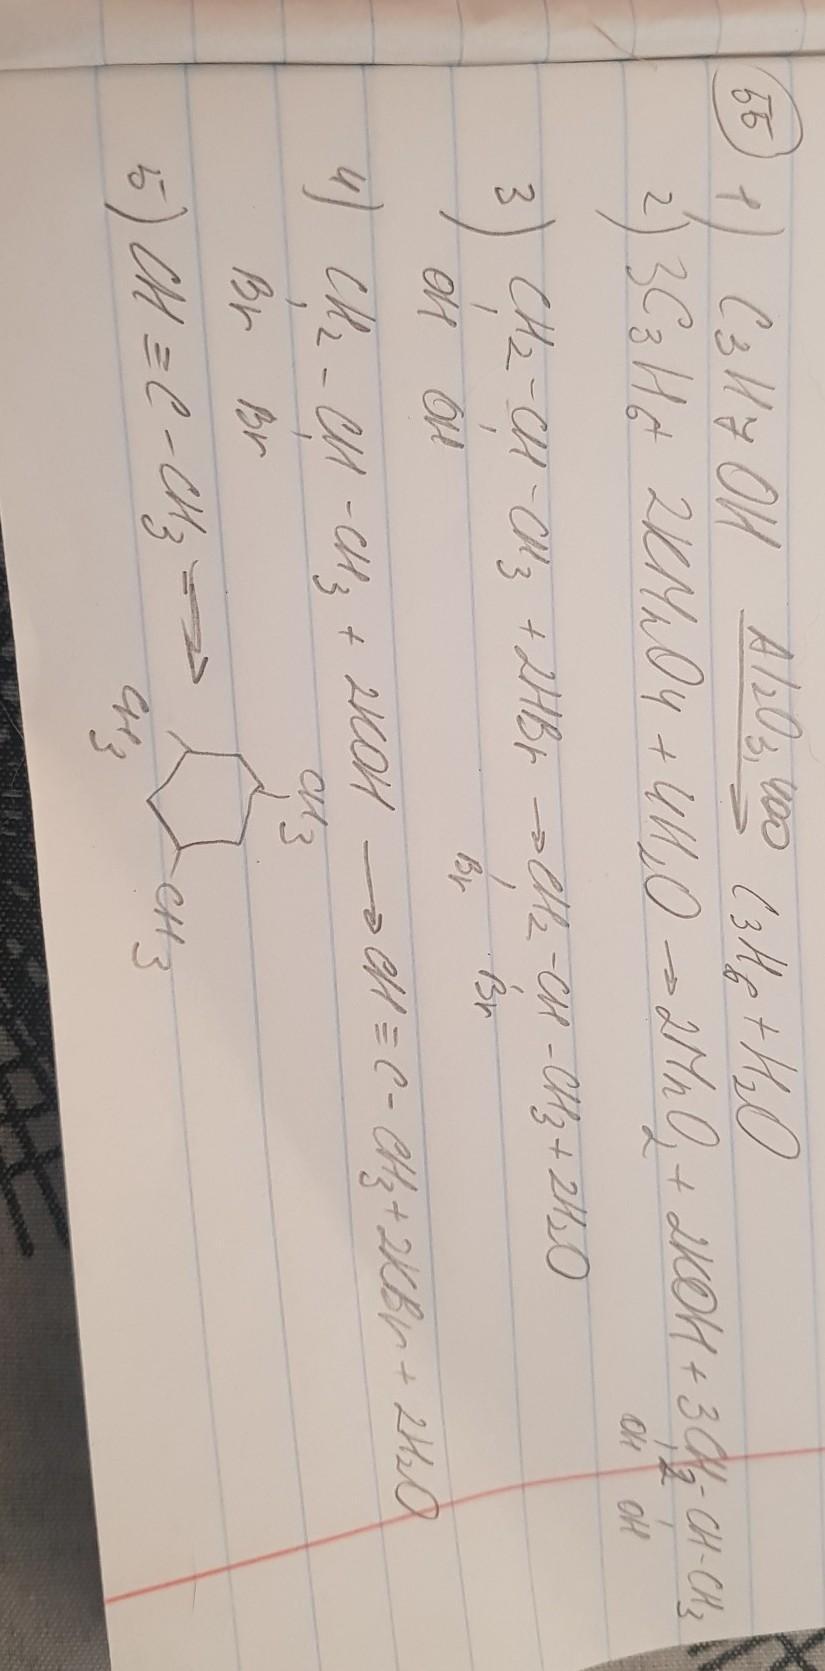 55
1) C3H7OH Al2O3, 400 → C3H6 + H2O
2) 3C3H6 + 2KMnO4 + 4H2O → 2MnO2 + 2KOH + 3CH2-CH-CH3
OH OH
3) CH2-CH-CH3 + 2HBr → CH2-CH-CH3 + 2H2O
OH OH Br Br
4) CH2-CH-CH3 + 2KOH → CH≡C-CH3 + 2KBr + 2H2O
Br Br
CH3
5) CH≡C-CH3 →
CH3 CH3